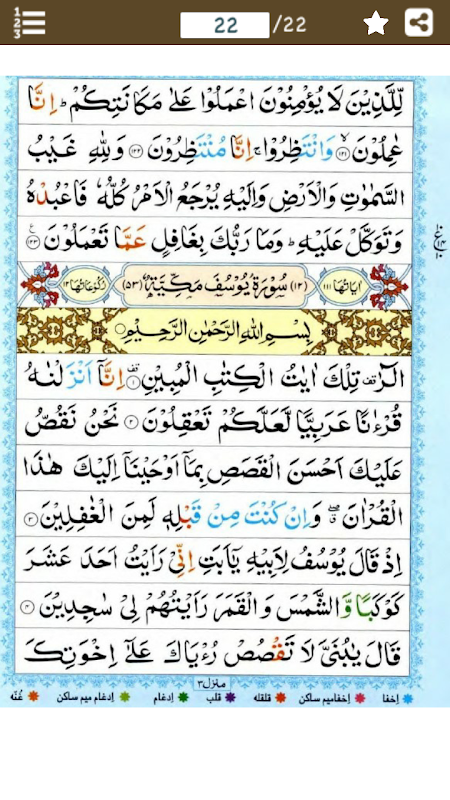 22 /22
لِّلَّذِيْنَ لَا يُؤْمِنُوْنَ اعْمَلُوْا عَلٰى مَكَانَتِكُمْ ؕ اِنَّا
عٰمِلُوْنَ ۙ﴿۱۲۱﴾ وَانْتَظِرُوْا ۚ اِنَّا مُنْتَظِرُوْنَ ﴿۱۲۲﴾ وَلِلّٰهِ غَيْبُ
السَّمٰوٰتِ وَالْاَرْضِ وَاِلَيْهِ يُرْجَعُ الْاَمْرُ كُلُّهٗ فَاعْبُدْهُ
وَتَوَكَّلْ عَلَيْهِ ؕ وَمَا رَبُّكَ بِغَافِلٍ عَمَّا تَعْمَلُوْنَ ﴿۱۲۳﴾
اٰيَاتُهَا ۱۱۱ (۱۲) سُوْرَةُ يُوْسُفَ مَكِّيَّةٌ (۵۳) رُكُوْعَاتُهَا ۱۲
بِسْمِ اللّٰهِ الرَّحْمٰنِ الرَّحِيْمِ
الٓرٰ ۫ تِلْكَ اٰيٰتُ الْكِتٰبِ الْمُبِيْنِ ﴿۱﴾ اِنَّاۤ اَنْزَلْنٰهُ
قُرْءٰنًا عَرَبِيًّا لَّعَلَّكُمْ تَعْقِلُوْنَ ﴿۲﴾ نَحْنُ نَقُصُّ
عَلَيْكَ اَحْسَنَ الْقَصَصِ بِمَاۤ اَوْحَيْنَاۤ اِلَيْكَ هٰذَا
الْقُرْاٰنَ ۖ وَاِنْ كُنْتَ مِنْ قَبْلِهٖ لَمِنَ الْغٰفِلِيْنَ ﴿۳﴾
اِذْ قَالَ يُوْسُفُ لِاَبِيْهِ يٰۤاَبَتِ اِنِّيْ رَاَيْتُ اَحَدَ عَشَرَ
كَوْكَبًا وَّالشَّمْسَ وَالْقَمَرَ رَاَيْتُهُمْ لِيْ سٰجِدِيْنَ ﴿۴﴾
قَالَ يٰبُنَيَّ لَا تَقْصُصْ رُءْيَاكَ عَلٰۤى اِخْوَتِكَ
منزل ۳
اِخفا اِخفامیم ساکن قلقله قلب اِدغام اِدغام میم ساکن غُنّه